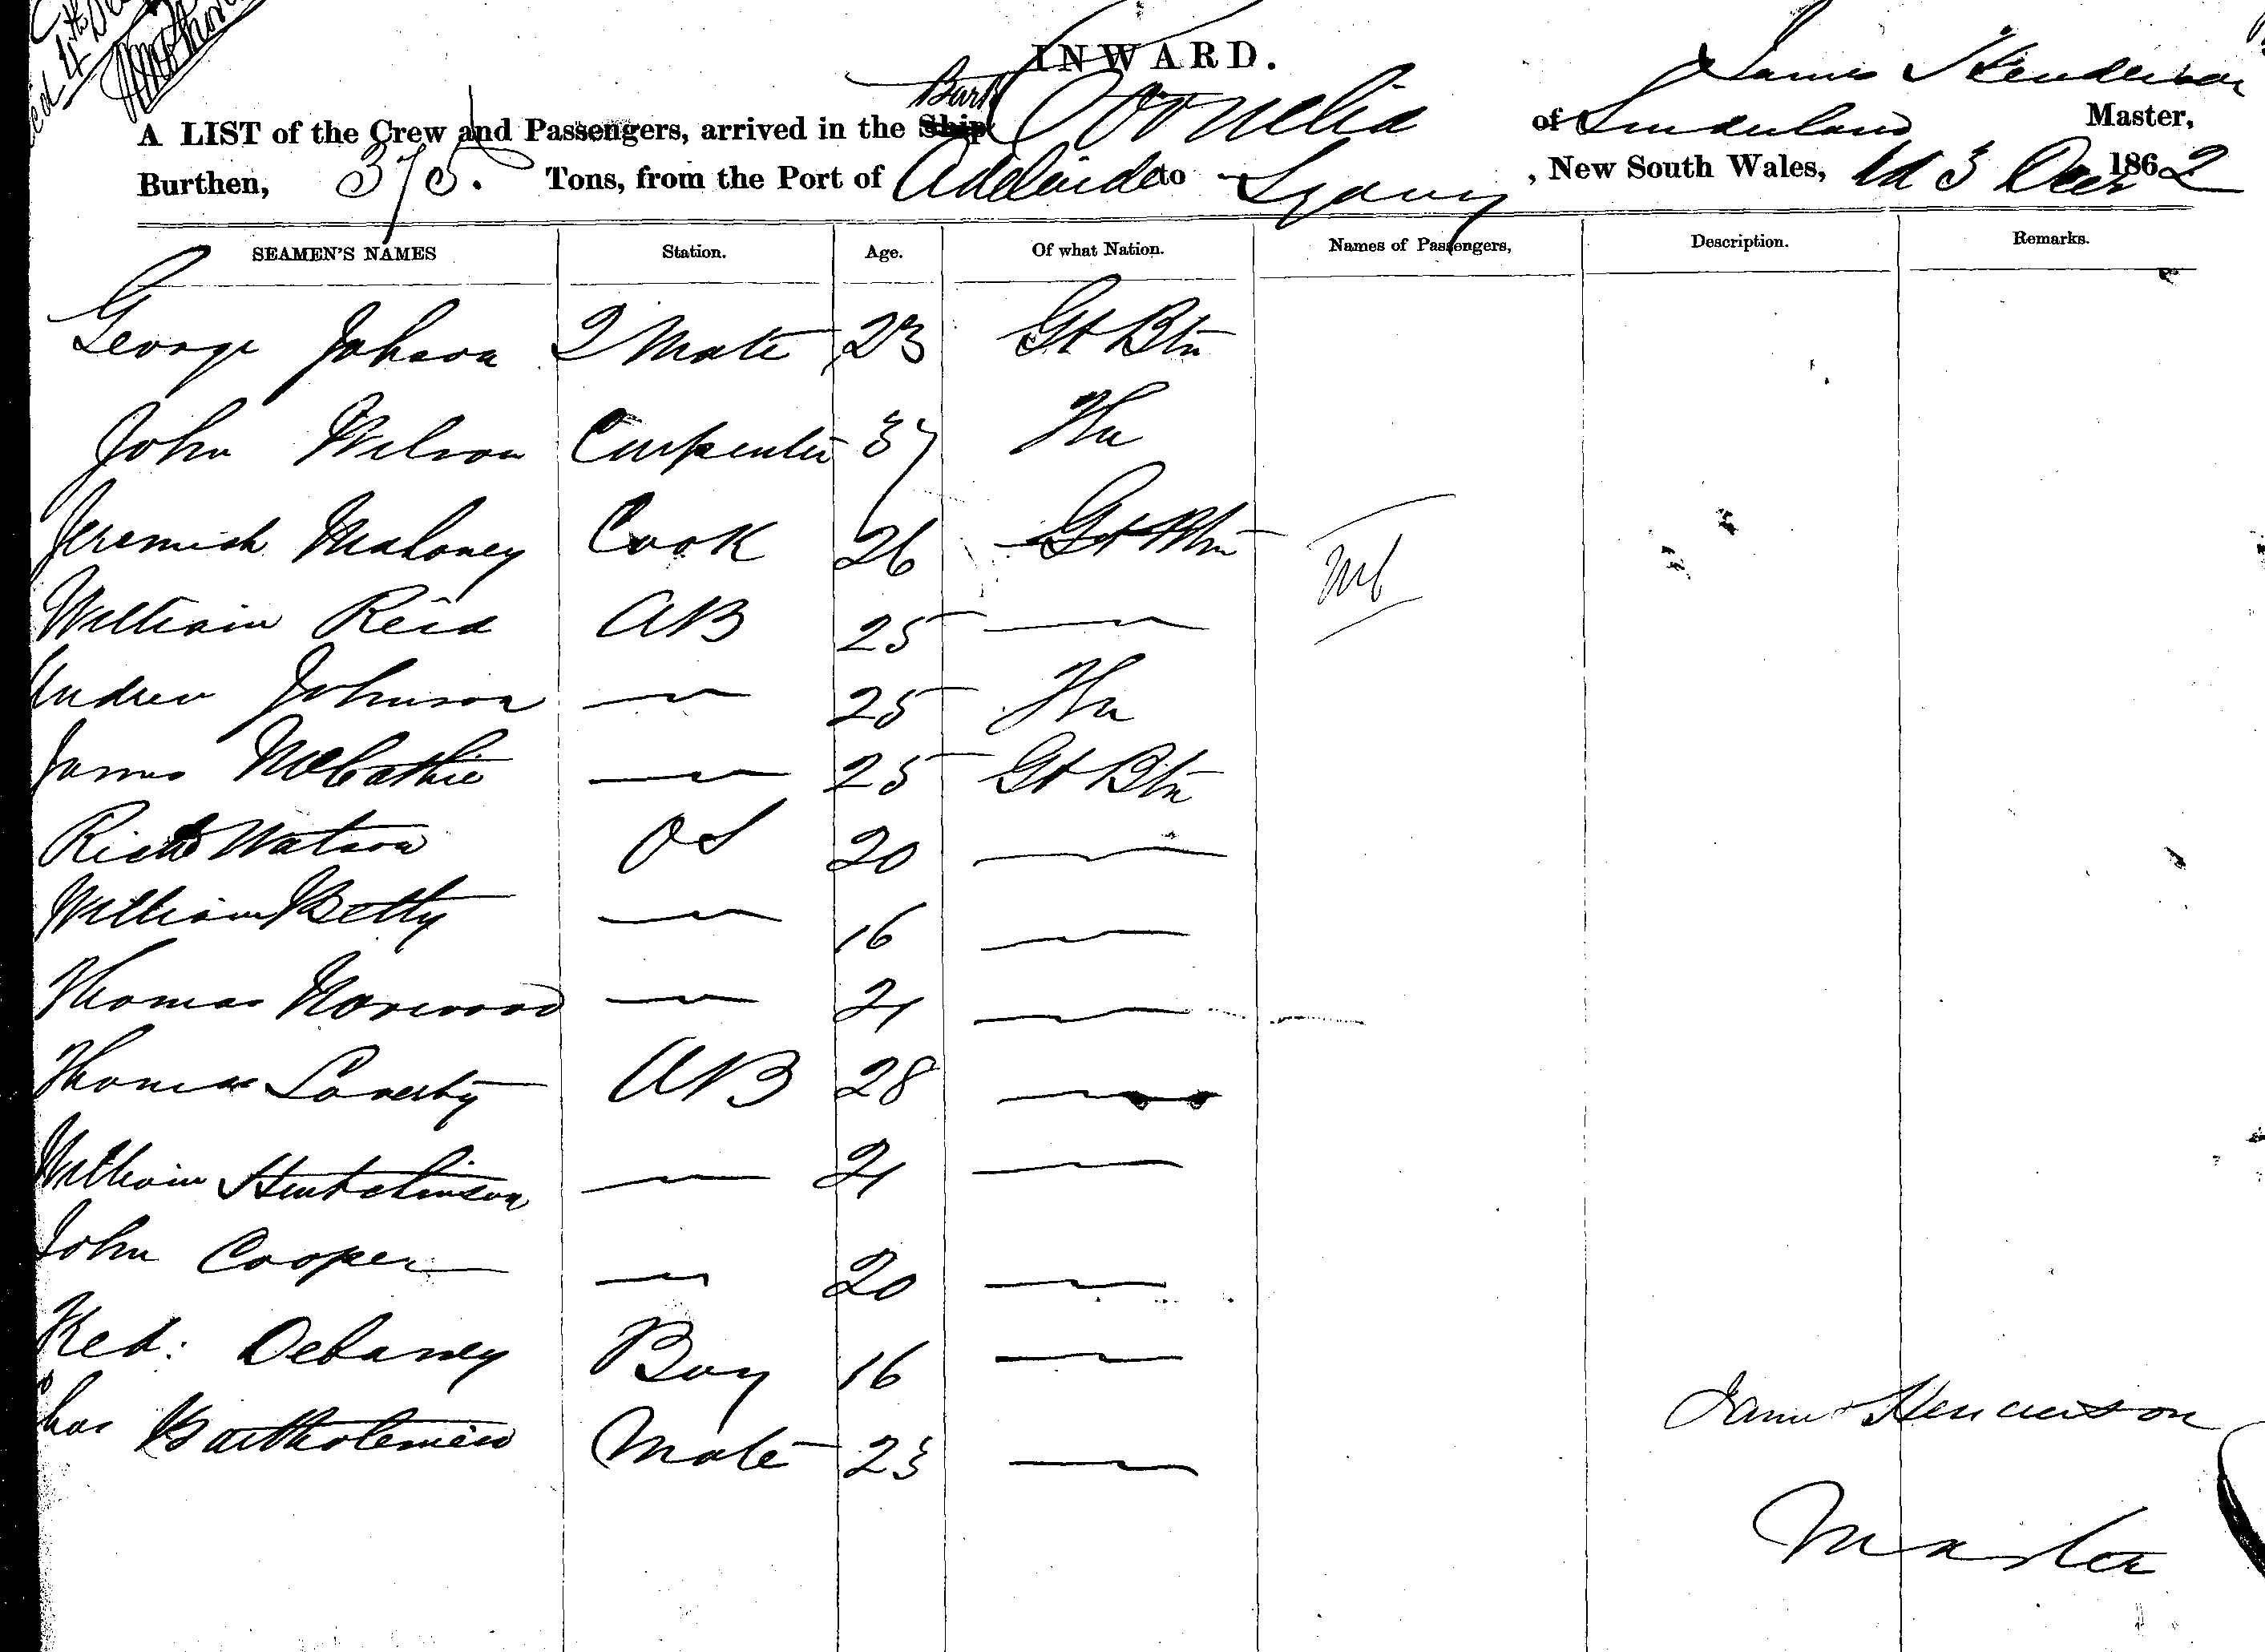 INWARD.
A LIST of the Crew and Passengers, arrived in the Ship Bark Cornelia of Sunderland James Henderson Master,
Burthen, 375. Tons, from the Port of Adelaide to Sydney, New South Wales, 3 Decr 1862
SEAMEN'S NAMES Station. Age. Of what Nation. Names of Passengers, Description. Remarks.
George Johson 2 Mate 23 Gt Btn
John Wilson Carpenter 37
Jeremiah Mahoney Cook 26 Gt Btn
William Reid AB 25 —
Andrew Johnson — 25
James McCathie — 25 Gt Btn
Richd Watson OS 20 —
William Betty — 16 —
Thomas Norwood — 21 —
Thomas Laverty AB 28 —
William Hutchinson — 21 —
John Cooper — 20 —
Fred: Delaney Boy 16 —
Chas Bartholemew Mate 23 —
James Henderson
Master